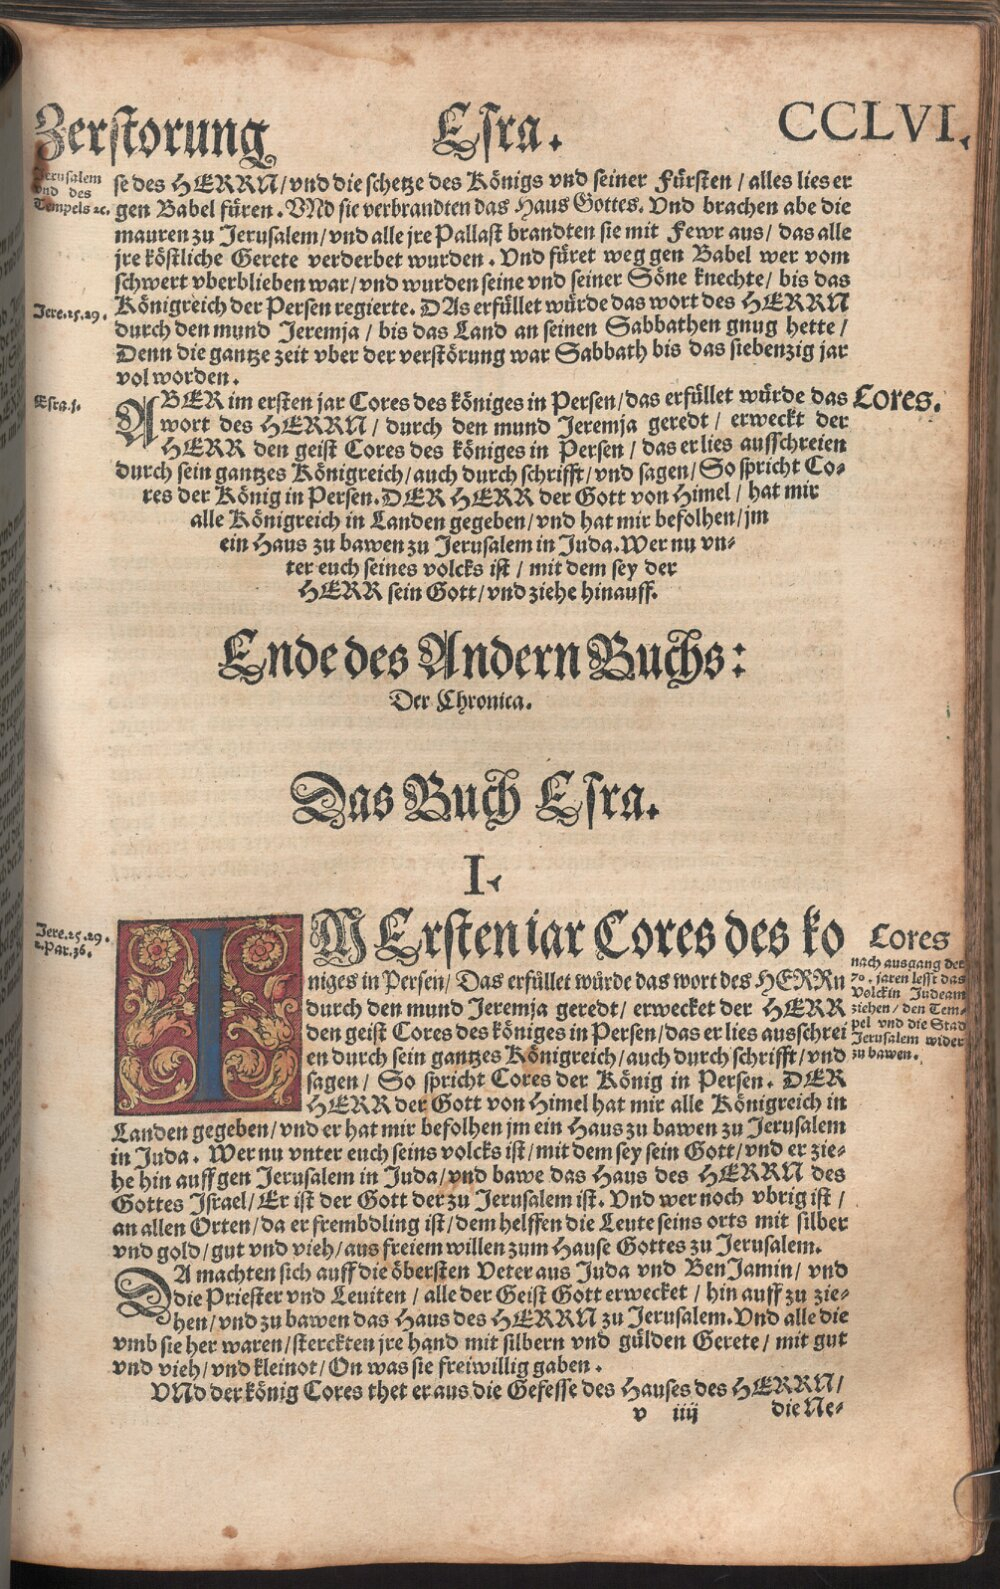 Zerstorung Esra. CCLVI.
Jerusalem
vnd des
Tempels ꝛc.
se des HERRN/vnd die schetze des Königs vnd seiner Fürsten / alles lies er
gen Babel füren. VNd sie verbrandten das Haus Gottes. Vnd brachen abe die
mauren zu Jerusalem/vnd alle jre Pallast brandten sie mit Fewr aus/ das alle
jre köstliche Gerete verderbet wurden. Vnd füret weg gen Babel wer vom
schwert vberblieben war/vnd wurden seine vnd seiner Söne knechte/ bis das
Jere.25.29.
Königreich der Persen regierte. DAs erfüllet würde das wort des HERRN
durch den mund Jeremja / bis das Land an seinen Sabbathen gnug hette /
Denn die gantze zeit vber der verstörung war Sabbath bis das siebenzig jar
vol worden.
Esra.j.
ABER im ersten jar Cores des königes in Persen/das erfüllet würde das
Cores.
wort des HERRN/ durch den mund Jeremja geredt/ erweckt der
HERR den geist Cores des königes in Persen / das er lies ausschreien
durch sein gantzes Königreich/auch durch schrifft/vnd sagen/So spricht Co-
res der König in Persen. DER HERR der Gott von Himel / hat mir
alle Königreich in Landen gegeben/vnd hat mir befolhen/jm
ein Haus zu bawen zu Jerusalem in Juda. Wer nu vn-
ter euch seines volcks ist / mit dem sey der
HERR sein Gott/vnd ziehe hinauff.
Ende des Andern Buchs:
Der Chronica.
Das Buch Esra.
I.
Jere.25.29.
2.Par.36.
IM Ersten iar Cores des ko
niges in Persen/ Das erfüllet würde das wort des HERRn
durch den mund Jeremja geredt/ erwecket der HERR
den geist Cores des königes in Persen/das er lies ausschrei
en durch sein gantzes Königreich/auch durch schrifft/vnd
sagen/ So spricht Cores der König in Persen. DER
HERR der Gott von Himel hat mir alle Königreich in
Cores
nach ausgang der
70. jaren lesst das
Volck in Judeam
ziehen/ den Tem-
pel vnd die Stad
Jerusalem wider
zu bawen.
Landen gegeben/vnd er hat mir befolhen jm ein Haus zu bawen zu Jerusalem
in Juda. Wer nu vnter euch seins volcks ist/mit dem sey sein Gott/vnd er zie-
he hin auff gen Jerusalem in Juda/vnd bawe das Haus des HERRN des
Gottes Jsrael/Er ist der Gott der zu Jerusalem ist. Vnd wer noch vbrig ist /
an allen Orten/da er frembdling ist/dem helffen die Leute seins orts mit silber
vnd gold/gut vnd vieh/aus freiem willen zum Hause Gottes zu Jerusalem.
DA machten sich auff die öbersten Veter aus Juda vnd BenJamin/ vnd
die Priester vnd Leuiten / alle der Geist Gott erwecket / hin auff zu zie-
hen/vnd zu bawen das Haus des HERRN zu Jerusalem. Vnd alle die
vmb sie her waren/sterckten jre hand mit silbern vnd gülden Gerete / mit gut
vnd vieh/vnd kleinot/On was sie freiwillig gaben.
VNd der könig Cores thet er aus die Gefesse des Hauses des HERRN/
v iiij die Ne-